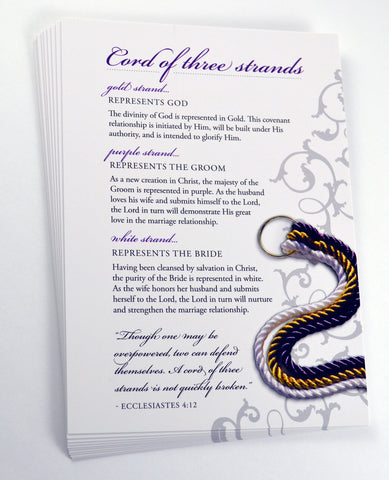 Cord of three strands
gold strand...
REPRESENTS GOD
The divinity of God is represented in Gold. This covenant
relationship is initiated by Him, will be built under His
authority, and is intended to glorify Him.
purple strand...
REPRESENTS THE GROOM
As a new creation in Christ, the majesty of the
Groom is represented in purple. As the husband
loves his wife and submits himself to the Lord,
the Lord in turn will demonstrate His great
love in the marriage relationship.
white strand...
REPRESENTS THE BRIDE
Having been cleansed by salvation in Christ,
the purity of the Bride is represented in white.
As the wife honors her husband and submits
herself to the Lord, the Lord in turn will nurture
and strengthen the marriage relationship.
"Though one may be
overpowered, two can defend
themselves. A cord of three
strands is not quickly broken."
- ECCLESIASTES 4:12